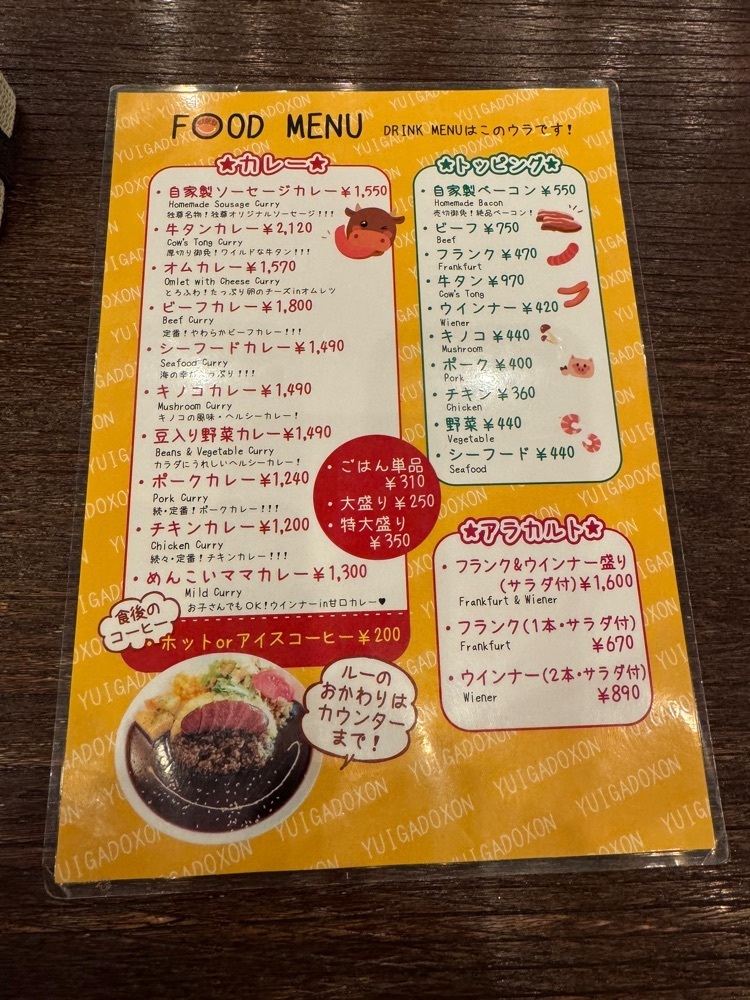 FOOD MENU
DRINK MENUはこのウラです！
★カレー★
・自家製ソーセージカレー￥1,550
Homemade Sousage Curry
独尊名物！独尊オリジナルソーセージ！！！
・牛タンカレー￥2,120
Cow's Tong Curry
厚切り御免！ワイルドな牛タン！！！
・オムカレー￥1,570
Omlet with Cheese Curry
とろふわ！たっぷり卵のチーズinオムレツ
・ビーフカレー￥1,800
Beef Curry
定番！やわらかビーフカレー！！！
・シーフードカレー￥1,490
Seafood Curry
海の幸たっぷり！！！
・キノコカレー￥1,490
Mushroom Curry
キノコの風味・ヘルシーカレー！
・豆入り野菜カレー￥1,490
Beans & Vegetable Curry
カラダにうれしいヘルシーカレー！
・ポークカレー￥1,240
Pork Curry
続・定番！ポークカレー！！！
・チキンカレー￥1,200
Chicken Curry
続々・定番！チキンカレー！！！
・めんこいママカレー￥1,300
Mild Curry
お子さんでもOK！ウインナーin甘口カレー♥
・ごはん単品
￥310
・大盛り￥250
・特大盛り
￥350
食後の
コーヒー
・ホットorアイスコーヒー￥200
ルーの
おかわりは
カウンター
まで！
★トッピング★
・自家製ベーコン￥550
Homemade Bacon
売切御免！絶品ベーコン！
・ビーフ￥750
Beef
・フランク￥470
Frankfurt
・牛タン￥970
Cow's Tong
・ウインナー￥420
Wiener
・キノコ￥440
Mushroom
・ポーク￥400
Pork
・チキン￥360
Chicken
・野菜￥440
Vegetable
・シーフード￥440
Seafood
★アラカルト★
・フランク&ウインナー盛り
(サラダ付)￥1,600
Frankfurt & Wiener
・フランク(1本・サラダ付)
￥670
Frankfurt
・ウインナー(2本・サラダ付)
￥890
Wiener
YUIGADOXON